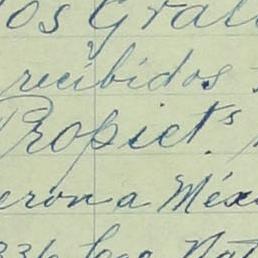 os Grat
recibidos
Propiet.s
eron a Méx